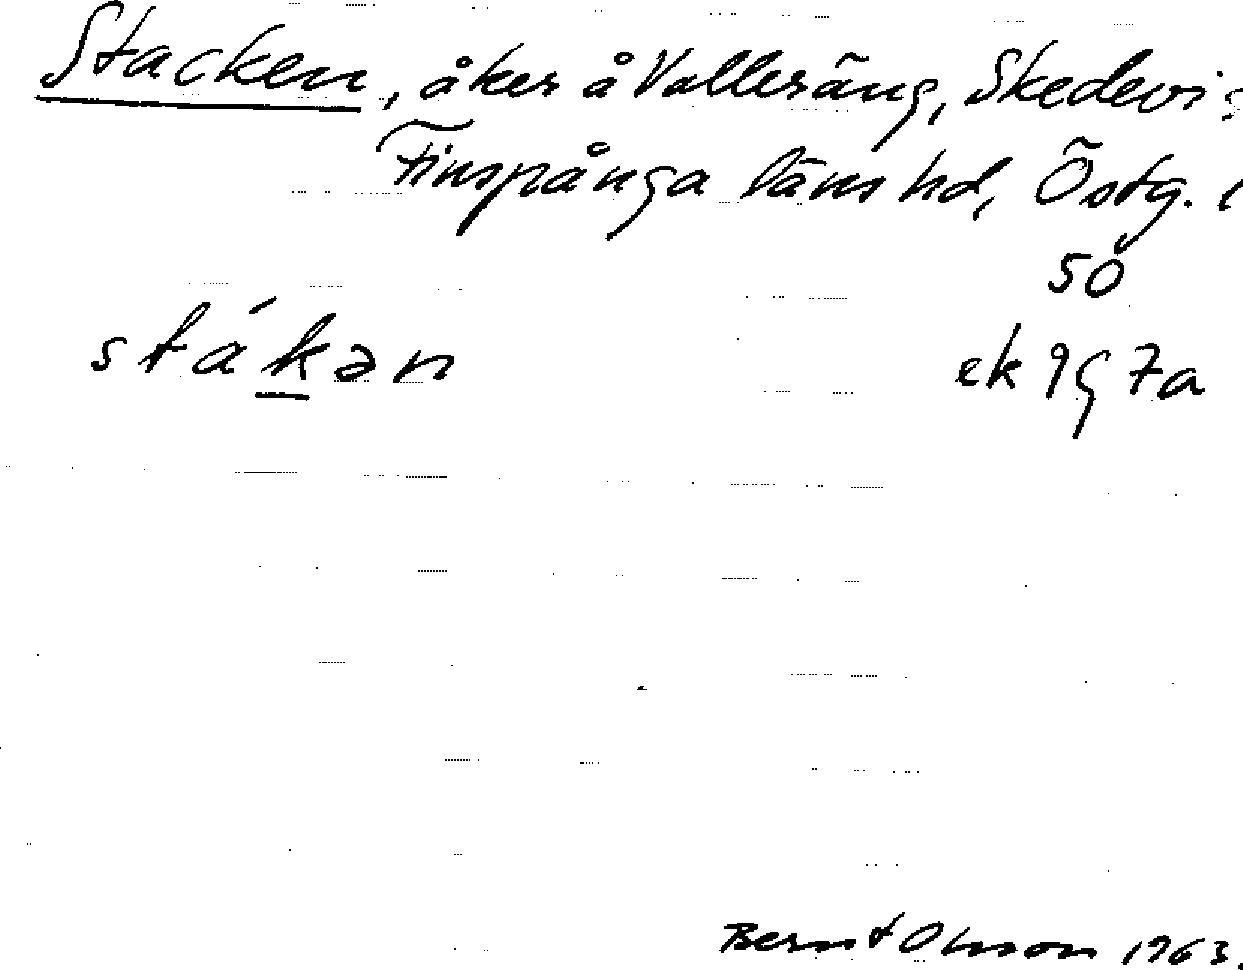 Stacken, åker å Vallersäng, Skedevi s
Finspånga läns hd, Östg. l
50
sták̲ən ek 9G 7a
Bernt Olsson 1963.